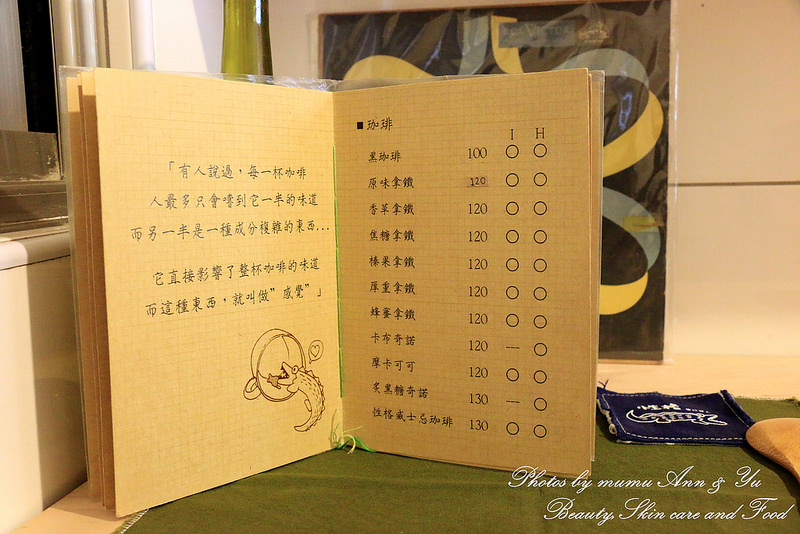 「有人說過，每一杯咖啡
人最多只會嚐到它一半的味道
而另一半是一種成分複雜的東西...
它直接影響了整杯咖啡的味道
而這種東西，就叫做”感覺”」
■珈琲
I H
黑珈琲 100 ○ ○
原味拿鐵 120 ○ ○
香草拿鐵 120 ○ ○
焦糖拿鐵 120 ○ ○
榛果拿鐵 120 ○ ○
厚重拿鐵 120 ○ ○
蜂蜜拿鐵 120 ○ ○
卡布奇諾 120 — ○
摩卡可可 120 ○ ○
炙黑糖奇諾 130 — ○
性格威士忌珈琲 130 ○ ○
性格
Photos by mumu Ann & Yu
Beauty, Skin care and Food